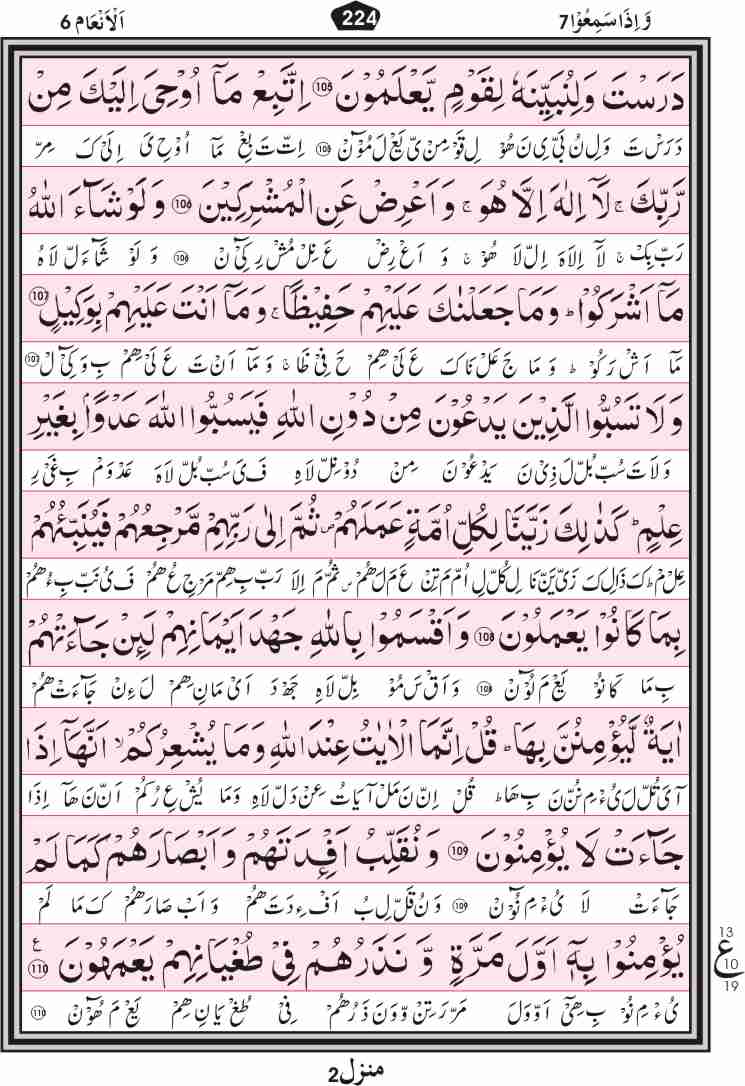 وَ اِذَا سَمِعُوْا 7
224
اَلْاَنْعَام 6
دَرَسْتَ وَ لِنُبَیِّنَهٗ لِقَوْمٍ یَّعْلَمُوْنَ ۝105 اِتَّبِعْ مَاۤ اُوْحِیَ اِلَیْكَ مِنْ
دَرَسْ تَ وَ لِ نُ بَیْ یِ نَ هُوْ لِ قَوْ مِنْ یَّ یَعْ لَ مُوْٓنْ ۝105 اِتْ تَ بِعْ مَآ اُوْحِ یَ اِلَیْ كَ مِرْ
رَّبِّكَ ۚ لَاۤ اِلٰهَ اِلَّا هُوَ ۚ وَ اَعْرِضْ عَنِ الْمُشْرِكِیْنَ ۝106 وَ لَوْ شَآءَ اللّٰهُ
رَبْ بِكْ ۚ لَآ اِلَاهَ اِلْ لَا هُوْ ۚ وَ اَعْ رِضْ عَ نِلْ مُشْ رِ كِیْٓ نْ ۝106 وَ لَوْ شَآءَ لْ لَا هُ
مَاۤ اَشْرَكُوْا ؕ وَ مَا جَعَلْنٰكَ عَلَیْهِمْ حَفِیْظًا ۚ وَ مَاۤ اَنْتَ عَلَیْهِمْ بِوَكِیْلٍ ۝107
مَآ اَشْ رَ كُوْ ؕ وَ مَا جَ عَلْ نَا كَ عَ لَیْ هِمْ حَ فِیْ ظَا ۚ وَ مَآ اَنْ تَ عَ لَیْ هِمْ بِ وَ كِیْٓ لْ ۝107
وَ لَا تَسُبُّوا الَّذِیْنَ یَدْعُوْنَ مِنْ دُوْنِ اللّٰهِ فَیَسُبُّوا اللّٰهَ عَدْوًۢا بِغَیْرِ
وَ لَا تَ سُبْ بُلْ لَ ذِیْ نَ یَدْ عُوْ نَ مِنْ دُوْ نِلْ لَا هِ فَ یَ سُبْ بُلْ لَا هَ عَدْ وَ مْ بِ غَیْ رِ
عِلْمٍ ؕ كَذٰلِكَ زَیَّنَّا لِكُلِّ اُمَّةٍ عَمَلَهُمْ ۪ ثُمَّ اِلٰی رَبِّهِمْ مَّرْجِعُهُمْ فَیُنَبِّئُهُمْ
عِلْ مْ ؕ كَ ذَالِ كَ زَیْ یَنْ نَا لِ كُلْ لِ اُمْ مَ تِنْ عَ مَ لَ هُمْ ۪ ثُمْ مَ اِلَا رَبْ بِ هِمْ مَرْجِ عُ هُمْ فَ یُ نَبْ بِ ءُ هُمْ
بِمَا كَانُوْا یَعْمَلُوْنَ ۝108 وَ اَقْسَمُوْا بِاللّٰهِ جَهْدَ اَیْمَانِهِمْ لَىِٕنْ جَآءَتْهُمْ
بِ مَا كَانُوْ یَعْ مَ لُوْٓنْ ۝108 وَ اَقْ سَ مُوْ بِلْ لَا هِ جَهْ دَ اَیْ مَانِ هِمْ لَ ءِنْ جَآءَتْ هُمْ
اٰیَةٌ لَّیُؤْمِنُنَّ بِهَا ؕ قُلْ اِنَّمَا الْاٰیٰتُ عِنْدَ اللّٰهِ وَ مَا یُشْعِرُكُمْ ۙ اَنَّهَاۤ اِذَا
آیَ تُلْ لَ یُءْ مِ نُنْ نَ بِ هَا ؕ قُلْ اِنْ نَ مَلْ آیَاتُ عِنْ دَلْ لَاهِ وَ مَا یُشْ عِ رُكُمْ اَنْ نَ هَآ اِذَا
جَآءَتْ لَا یُؤْمِنُوْنَ ۝109 وَ نُقَلِّبُ اَفْـِٕدَتَهُمْ وَ اَبْصَارَهُمْ كَمَا لَمْ
جَآءَتْ لَا یُءْ مِ نُوْٓنْ ۝109 وَ نُ قَلْ لِ بُ اَفْ ءِ دَتَ هُمْ وَ اَبْ صَارَهُمْ كَ مَا لَمْ
یُؤْمِنُوْا بِهٖۤ اَوَّلَ مَرَّةٍ وَّ نَذَرُهُمْ فِیْ طُغْیَانِهِمْ یَعْمَهُوْنَ ۝110 ع
یُءْ مِ نُوْ بِ هِیْٓ اَوْ وَلَ مَرْ رَ تِنْ وَّ وَ نَ ذَرُهُمْ فِیْ طُغْ یَانِ هِمْ یَعْ مَ هُوْٓنْ ۝110
13
ع
10
19
منزل 2